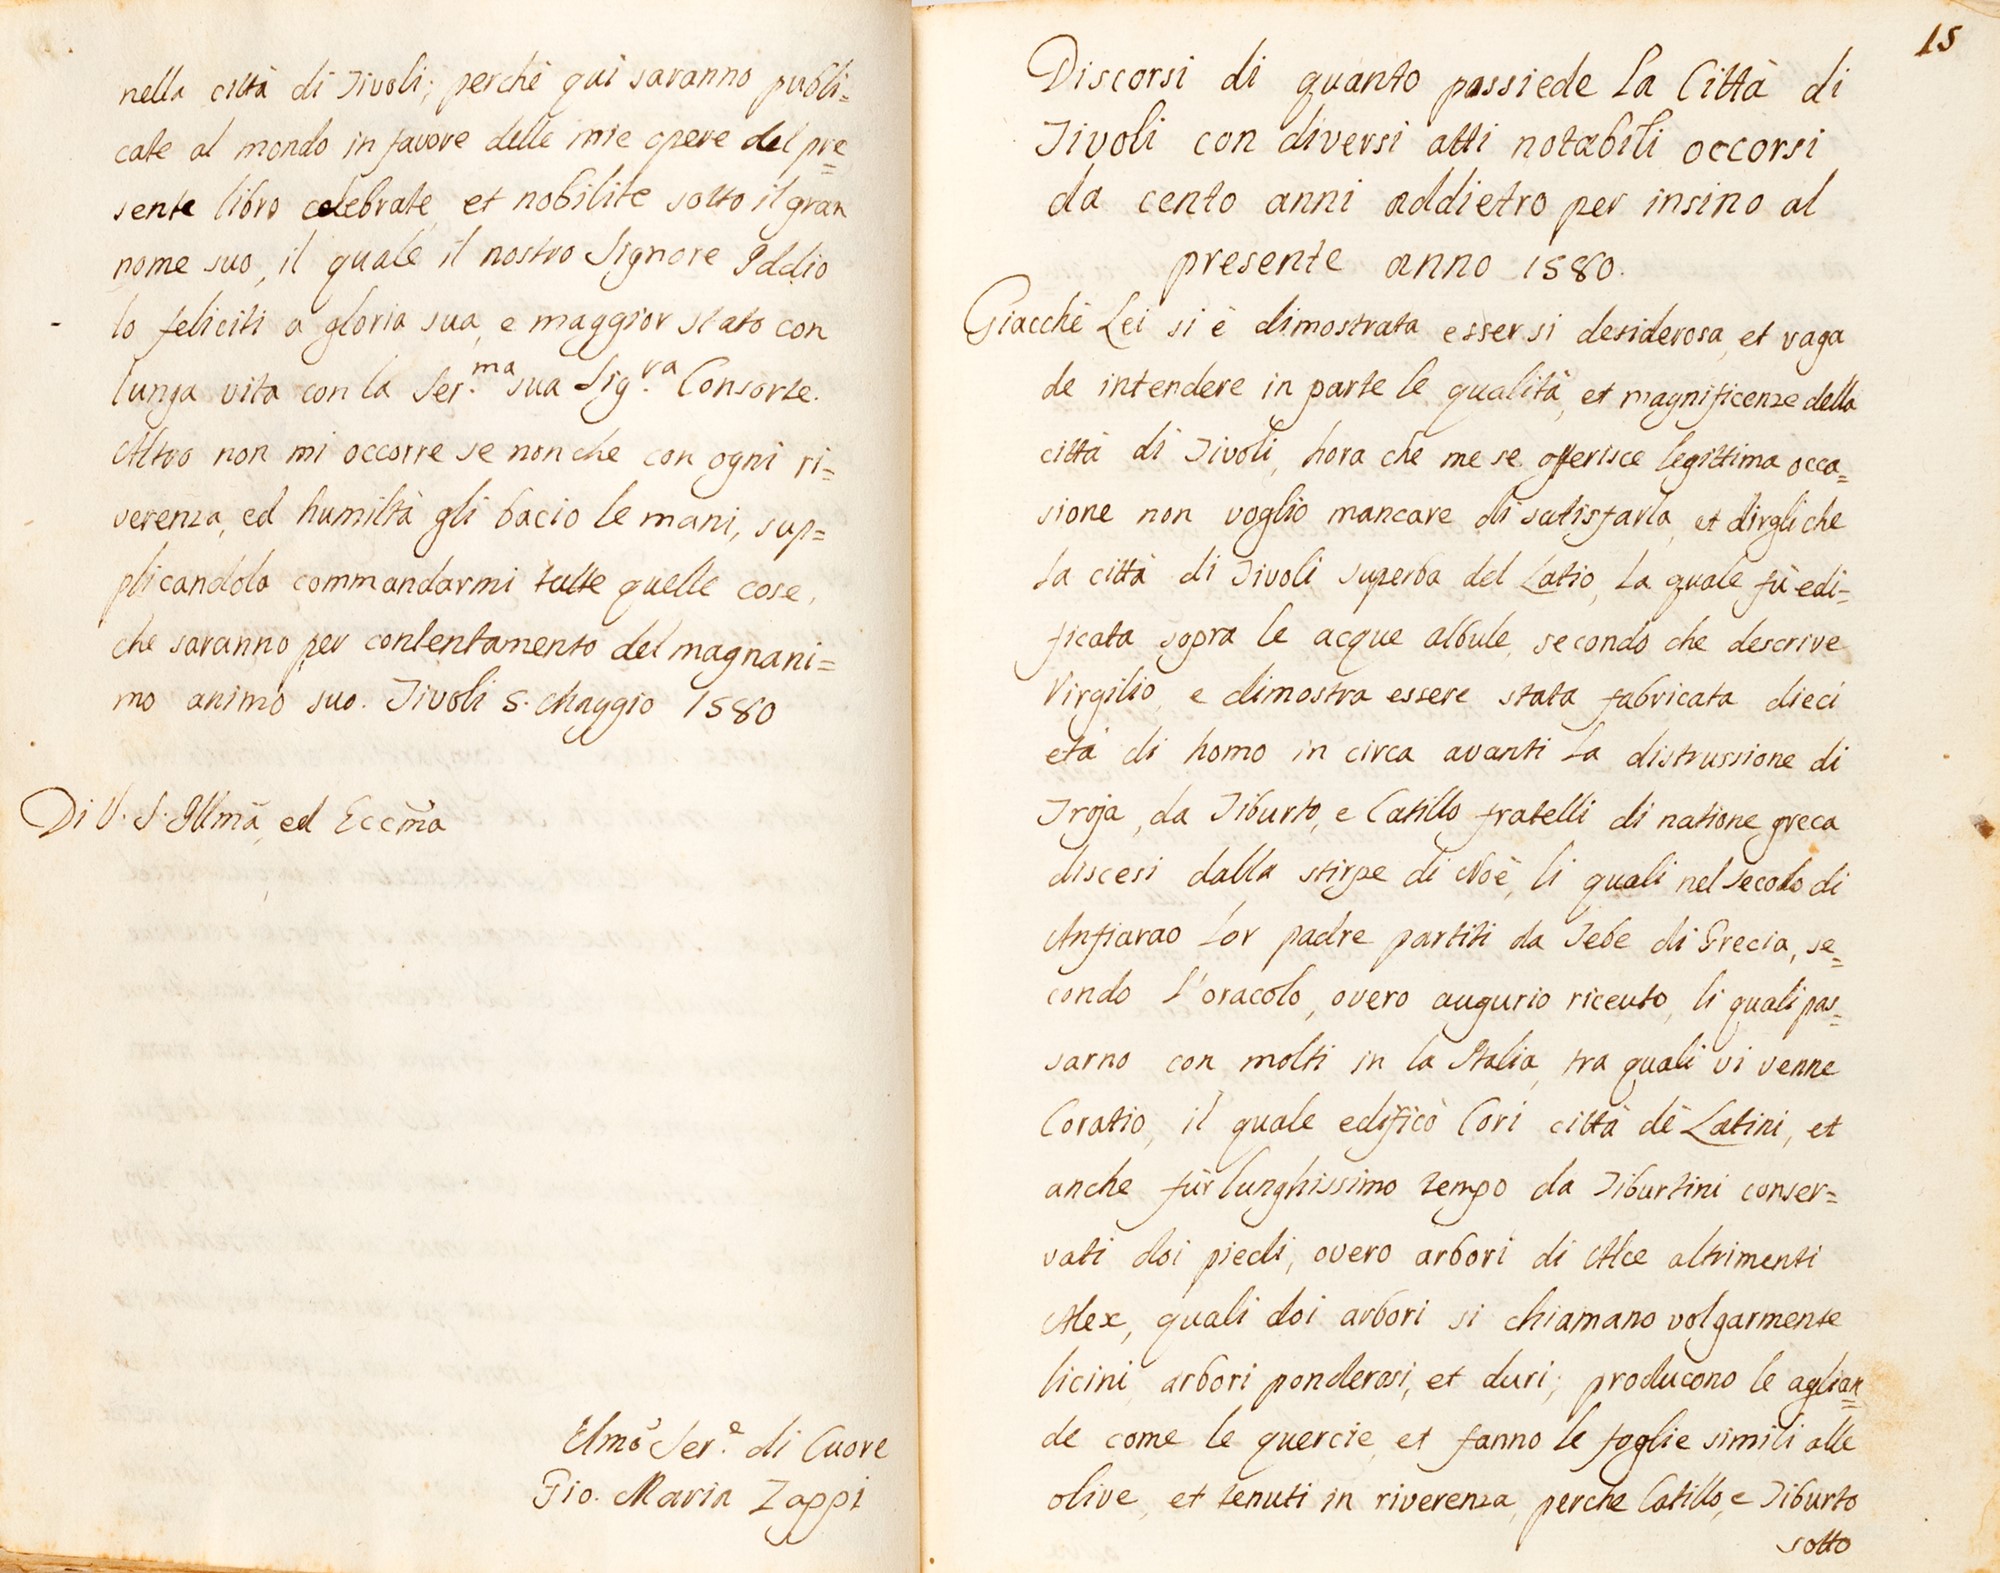 nella città di Tivoli; perchè qui saranno publi=
cate al mondo in favore delle mie opere del pre=
sente libro celebrate, et nobilite sotto il gran
nome suo, il quale il nostro Signore Iddio
lo feliciti a gloria sua, e maggior stato con
lunga vita con la Ser.ma sua Sig.ra Consorte.
Altro non mi occorre se non che con ogni ri=
verenza, ed humiltà gli bacio le mani, sup=
plicandola commandarmi tutte quelle cose,
che saranno per contentamento del magnani=
mo animo suo. Tivoli 5. Maggio 1580
Di V. S. Illma, ed Eccma
Ser.e di Cuore
Gio. Maria Zappi
15
Discorsi di quanto possiede la Città di
Tivoli con diversi atti notabili occorsi
da cento anni addietro per insino al
presente anno 1580.
Giacchè Lei si è dimostrata essersi desiderosa, et vaga
de intendere in parte le qualità, et magnificenze della
città di Tivoli, hora che me se offerisce legittima occa=
sione non voglio mancare di satisfarla, et dirgli che
la città di Tivoli superba del Latio, la quale fù edi=
ficata sopra le acque albule, secondo che descrive
Virgilio, e dimostra essere stata fabricata dieci
età di homo in circa avanti la distrussione di
Troja, da Tiburto, e Catillo fratelli di natione greca
discesi dalla stirpe di Noè, li quali nel secolo di
Anfiarao lor padre partiti da Tebe di Grecia, se=
condo l'oracolo, overo augurio riceuto, li quali pas=
sarno con molti in la Italia, tra quali vi venne
Coratio, il quale edificò Cori città dè Latini, et
anche fùr lunghissimo tempo da Tiburtini conser=
vati doi piedi, overo arbori di Alce altrimenti
Alex, quali doi arbori si chiamano volgarmente
licini, arbori ponderosi, et duri; producono le aglian=
de come le quercie, et fanno le foglie simili alle
olive, et tenuti in riverenza, perche Catillo, e Tiburto
sotto